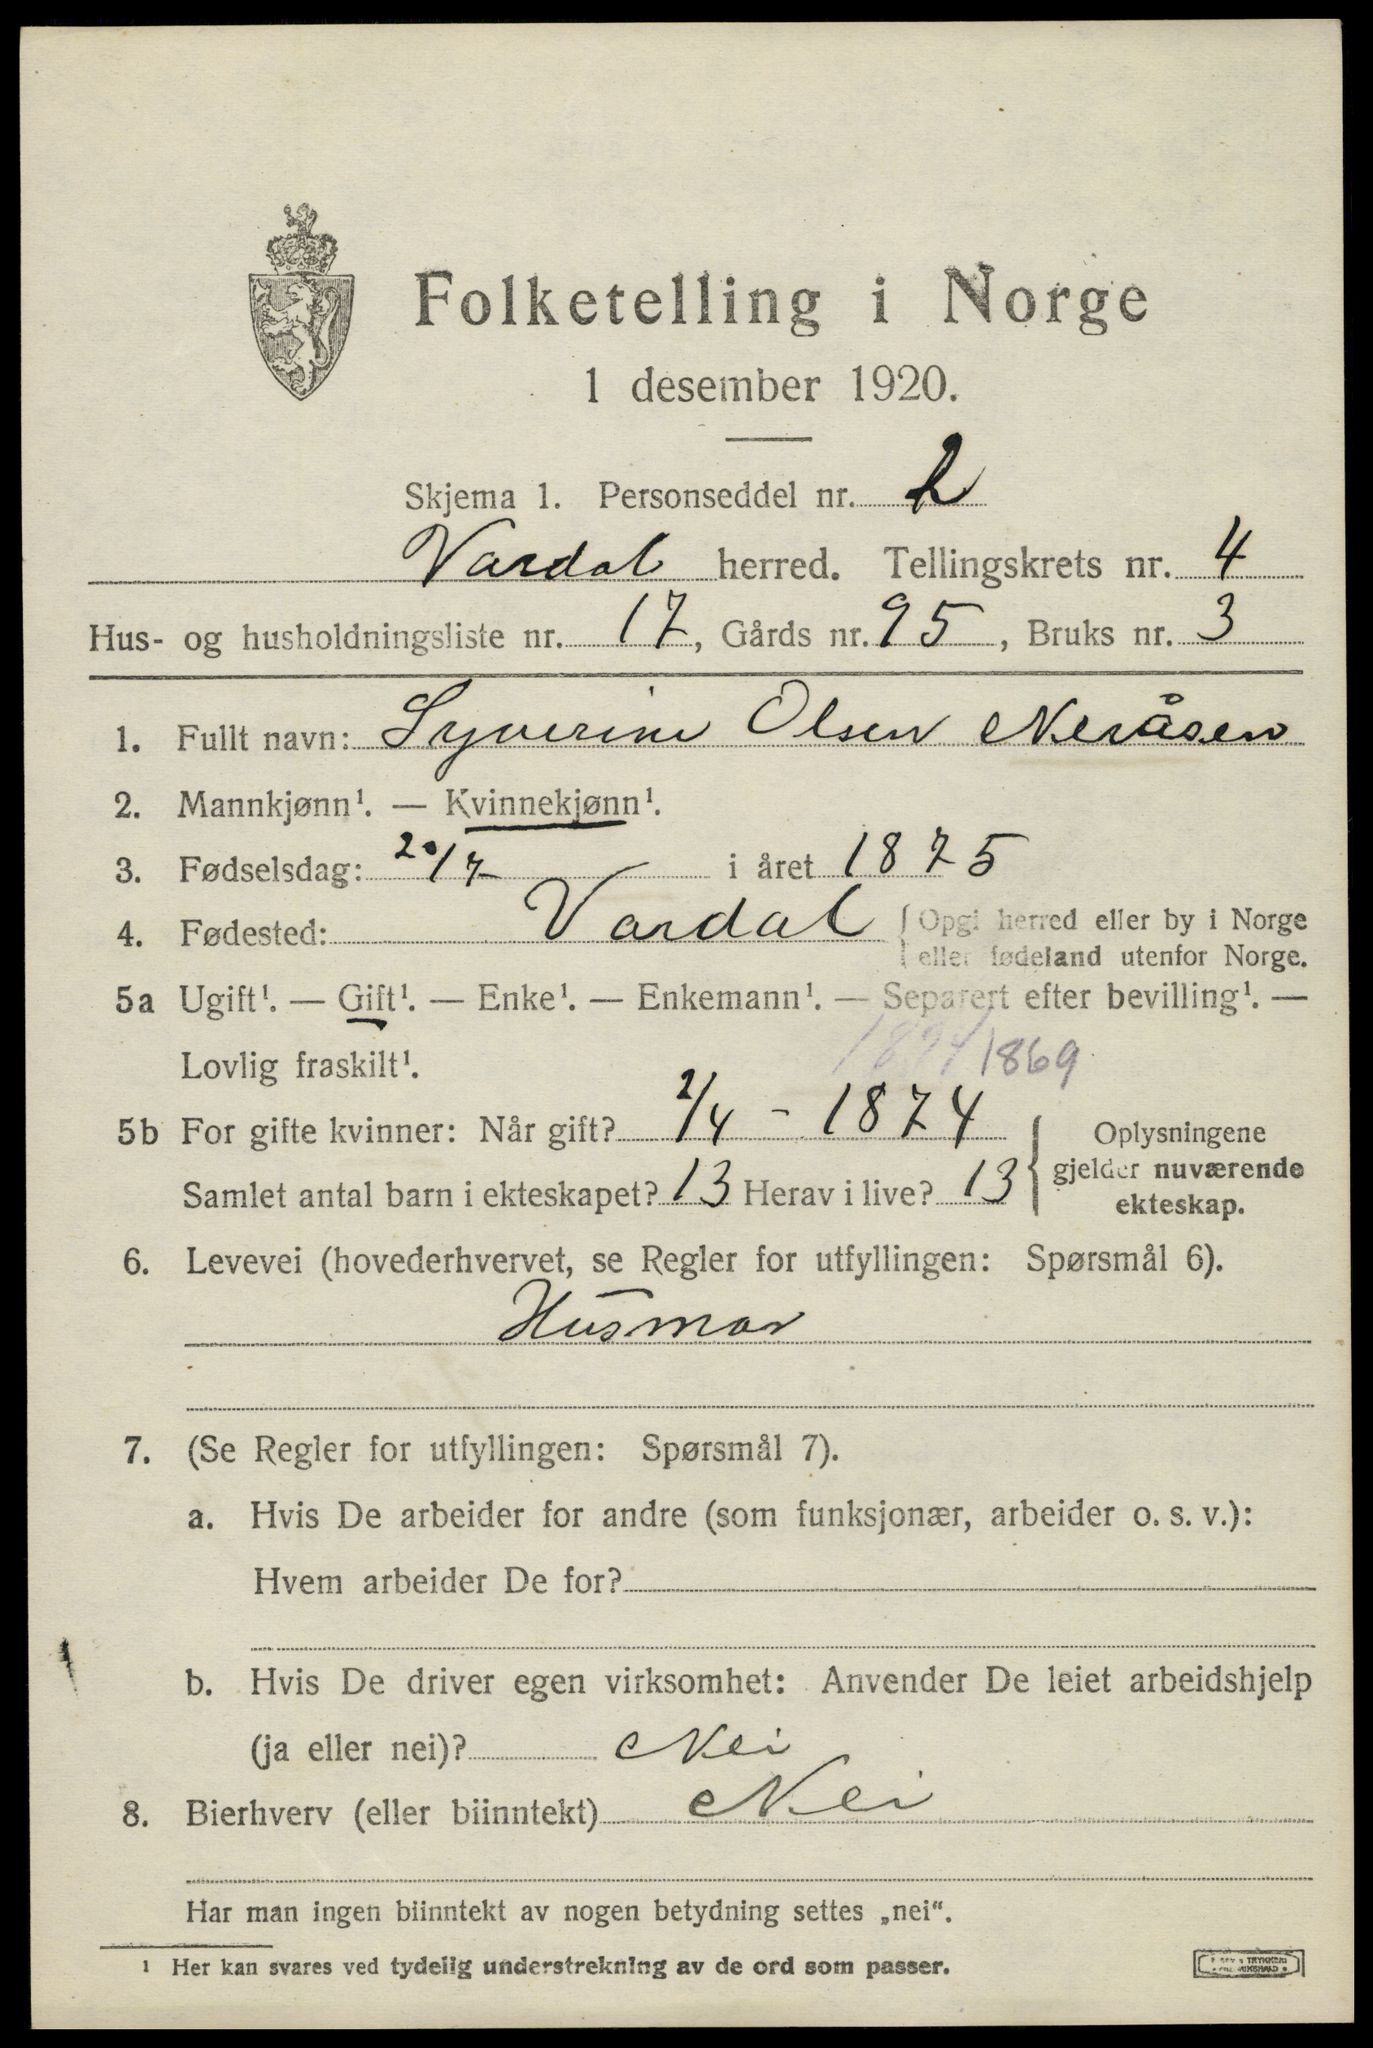 Folketelling i Norge
1 desember 1920.
Skjema 1. Personseddel nr. 2
Vardal herred. Tellingskrets nr. 4
Hus- og husholdningsliste nr. 17, Gårds nr. 95, Bruks nr. 3
1. Fullt navn: Syverine Olsen Neråsen
2. Mannkjønn¹. — Kvinnekjønn¹.
3. Fødselsdag: 20/7 i året 1875
4. Fødested: Vardal {Opgi herred eller by i Norge
eller fødeland utenfor Norge.
5a Ugift¹. — Gift¹. — Enke¹. — Enkemann¹. — Separert efter bevilling¹. —
Lovlig fraskilt¹. 1894 1869
5b For gifte kvinner: Når gift? 2/4 - 1874 { Oplysningene
gjelder nuværende
Samlet antal barn i ekteskapet? 13 Herav i live? 13
ekteskap.
6. Levevei (hovederhvervet, se Regler for utfyllingen: Spørsmål 6).
Husmor
7. (Se Regler for utfyllingen: Spørsmål 7).
a. Hvis De arbeider for andre (som funksjonær, arbeider o. s. v.):
Hvem arbeider De for?
b. Hvis De driver egen virksomhet: Anvender De leiet arbeidshjelp
(ja eller nei)? Nei
8. Bierhverv (eller biinntekt) Nei
Har man ingen biinntekt av nogen betydning settes „nei“.
¹ Her kan svares ved tydelig understrekning av de ord som passer.